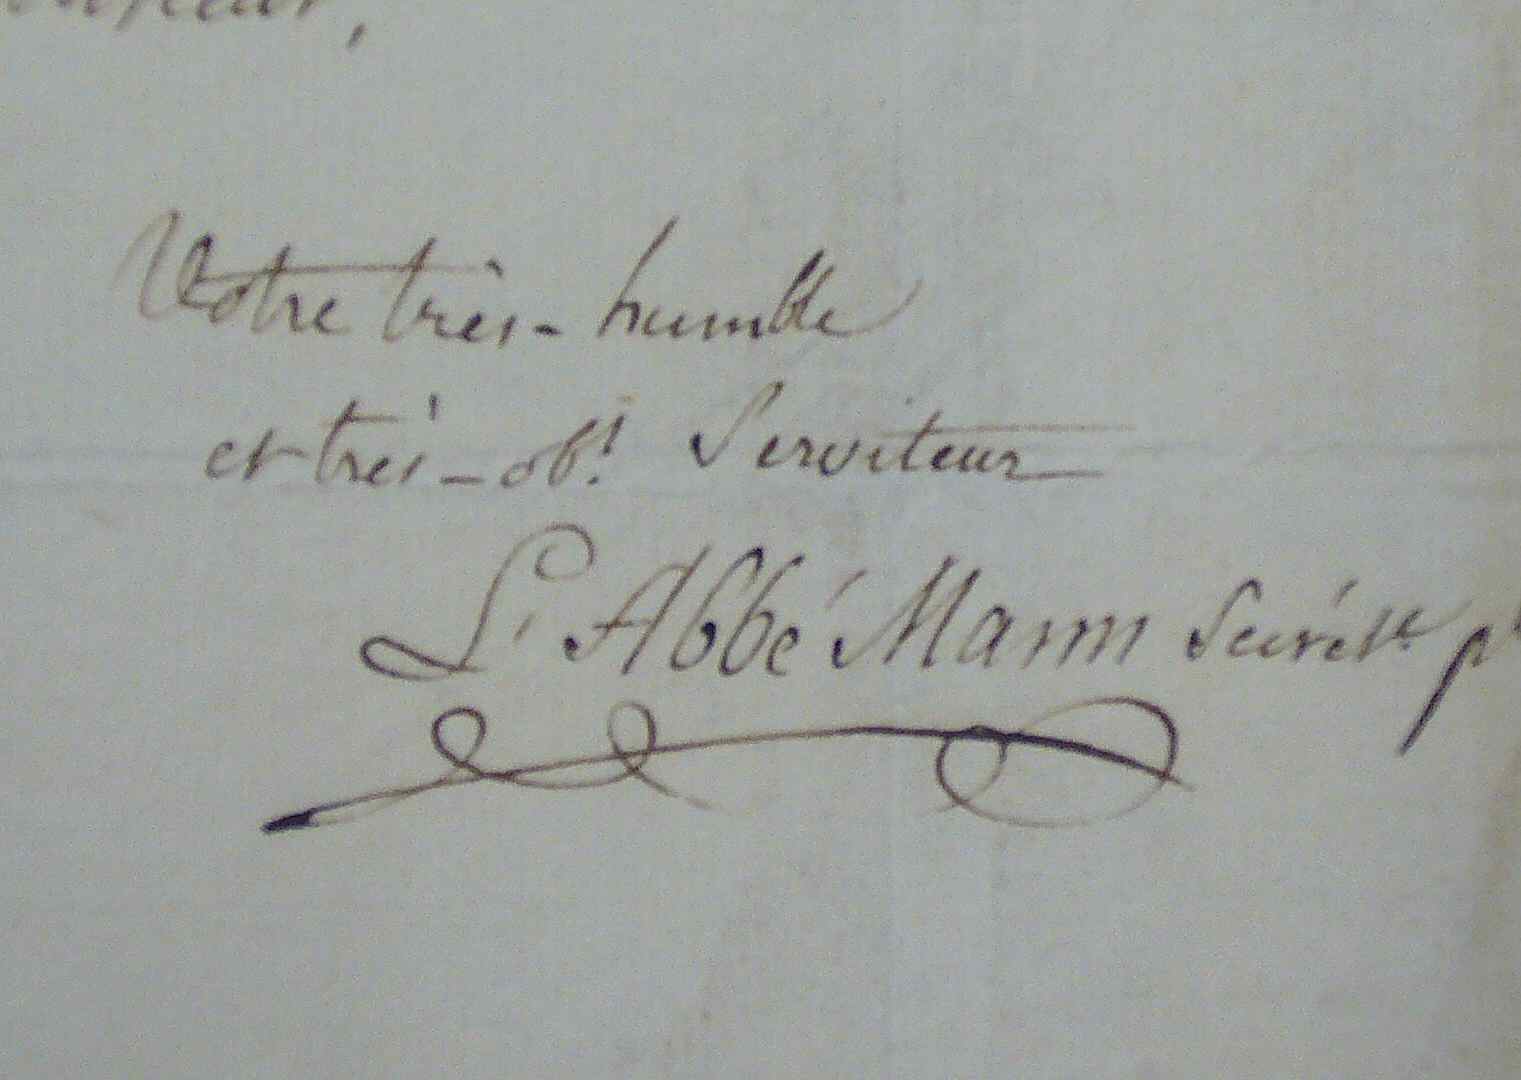 Votre très-humble
et très-obt. Serviteur
L'Abbé Mann Secrétre. pl